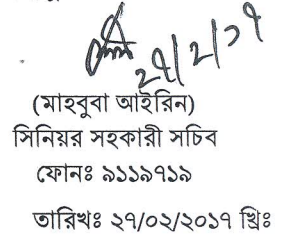 ২৭/২/১৭
(মাহবুবা আইরিন)
সিনিয়র সহকারী সচিব
ফোনঃ ৯১১৯৭১৯
তারিখঃ ২৭/০২/২০১৭ খ্রিঃ